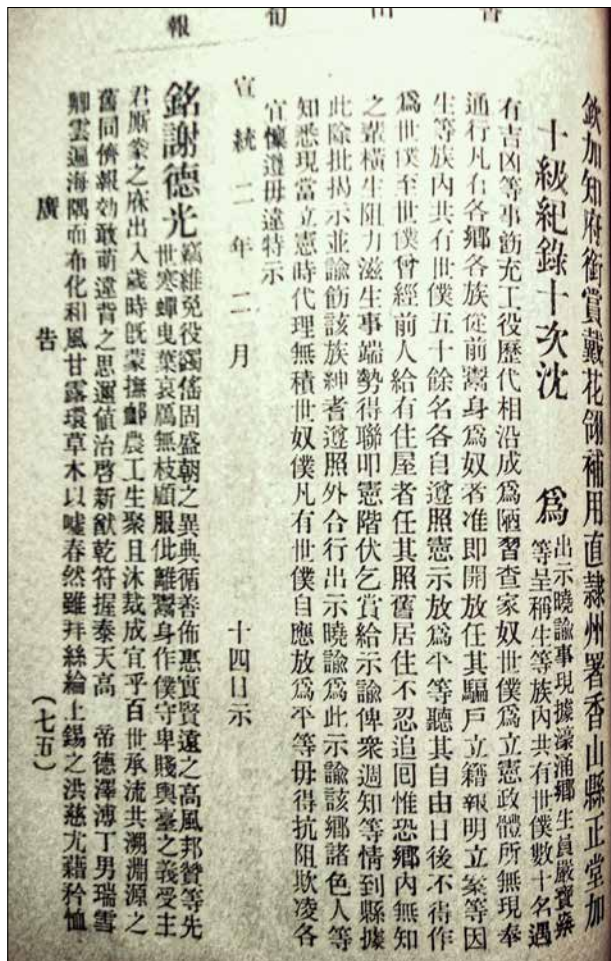 香山旬報
欽加知府銜賞戴花翎補用直隸州署香山縣正堂加
十級紀錄十次沈 爲
出示曉諭事現據濠涌鄉生員嚴寶藥
等呈稱生等族內共有世僕數十名遇
有吉凶等事飭充工役歷代相沿成爲陋習查家奴世僕爲立憲政體所無現奉
通行凡有各鄉各族從前鬻身爲奴者准即開放任其騙戶立籍報明立案等因
生等族內共有世僕五十餘名各自遵照憲示放爲平等聽其自由日後不得作
爲世僕至世僕曾經前人給有住屋者任其照舊居住不忍追回惟恐鄉內無知
之輩橫生阻力滋生事端勢得聯叩憲階伏乞賞給示諭俾衆週知等情到縣據
此除批揭示並諭飭該族紳耆遵照外合行出示曉諭爲此示諭該鄉諸色人等
知悉現當立憲時代理無積世奴僕凡有世僕自應放爲平等毋得抗阻欺凌各
宜懍遵毋違特示
宣統二年二月 十四日示
銘謝德光
竊維免役蠲徭固盛朝之異典循善佈惠實賢遠之高風邦贊等先
世寒蟬曳葉哀鴈無枝顧服仳離鬻身作僕守卑賤輿臺之義受主
君厮養之庥出入歲時旣蒙撫卹農工生聚且沐栽成宜乎百世承流共溯淵源之
舊同儕報効敢萌違背之思邇値治啓新猷乾符握泰天高 帝德澤溥丁男瑞雪
卿雲遍海隅而布化和風甘露環草木以噓春然雖拜絲綸上錫之洪慈尤藉矜恤
廣告
(七五)